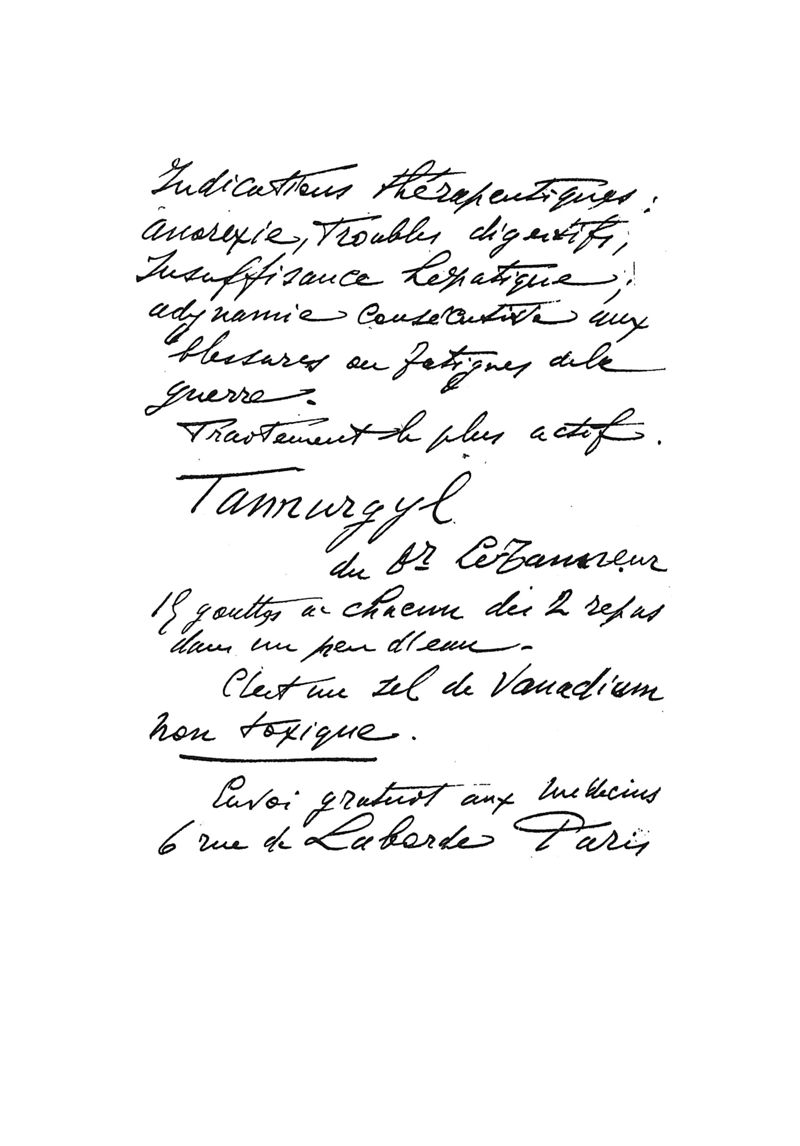 Indications thérapeutiques :
anorexie, Troubles digestifs,
Insuffisance hépatique,
adynamie consécutive aux
blessures ou fatigues de la
guerre.
Traitement le plus actif.
Tannurgyl
du Dr Le Tanneur
15 gouttes à chacun des 2 repas
dans un peu d'eau.
C'est un sel de Vanadium
non toxique.
Envoi gratuit aux médecins
6 rue de Laborde Paris